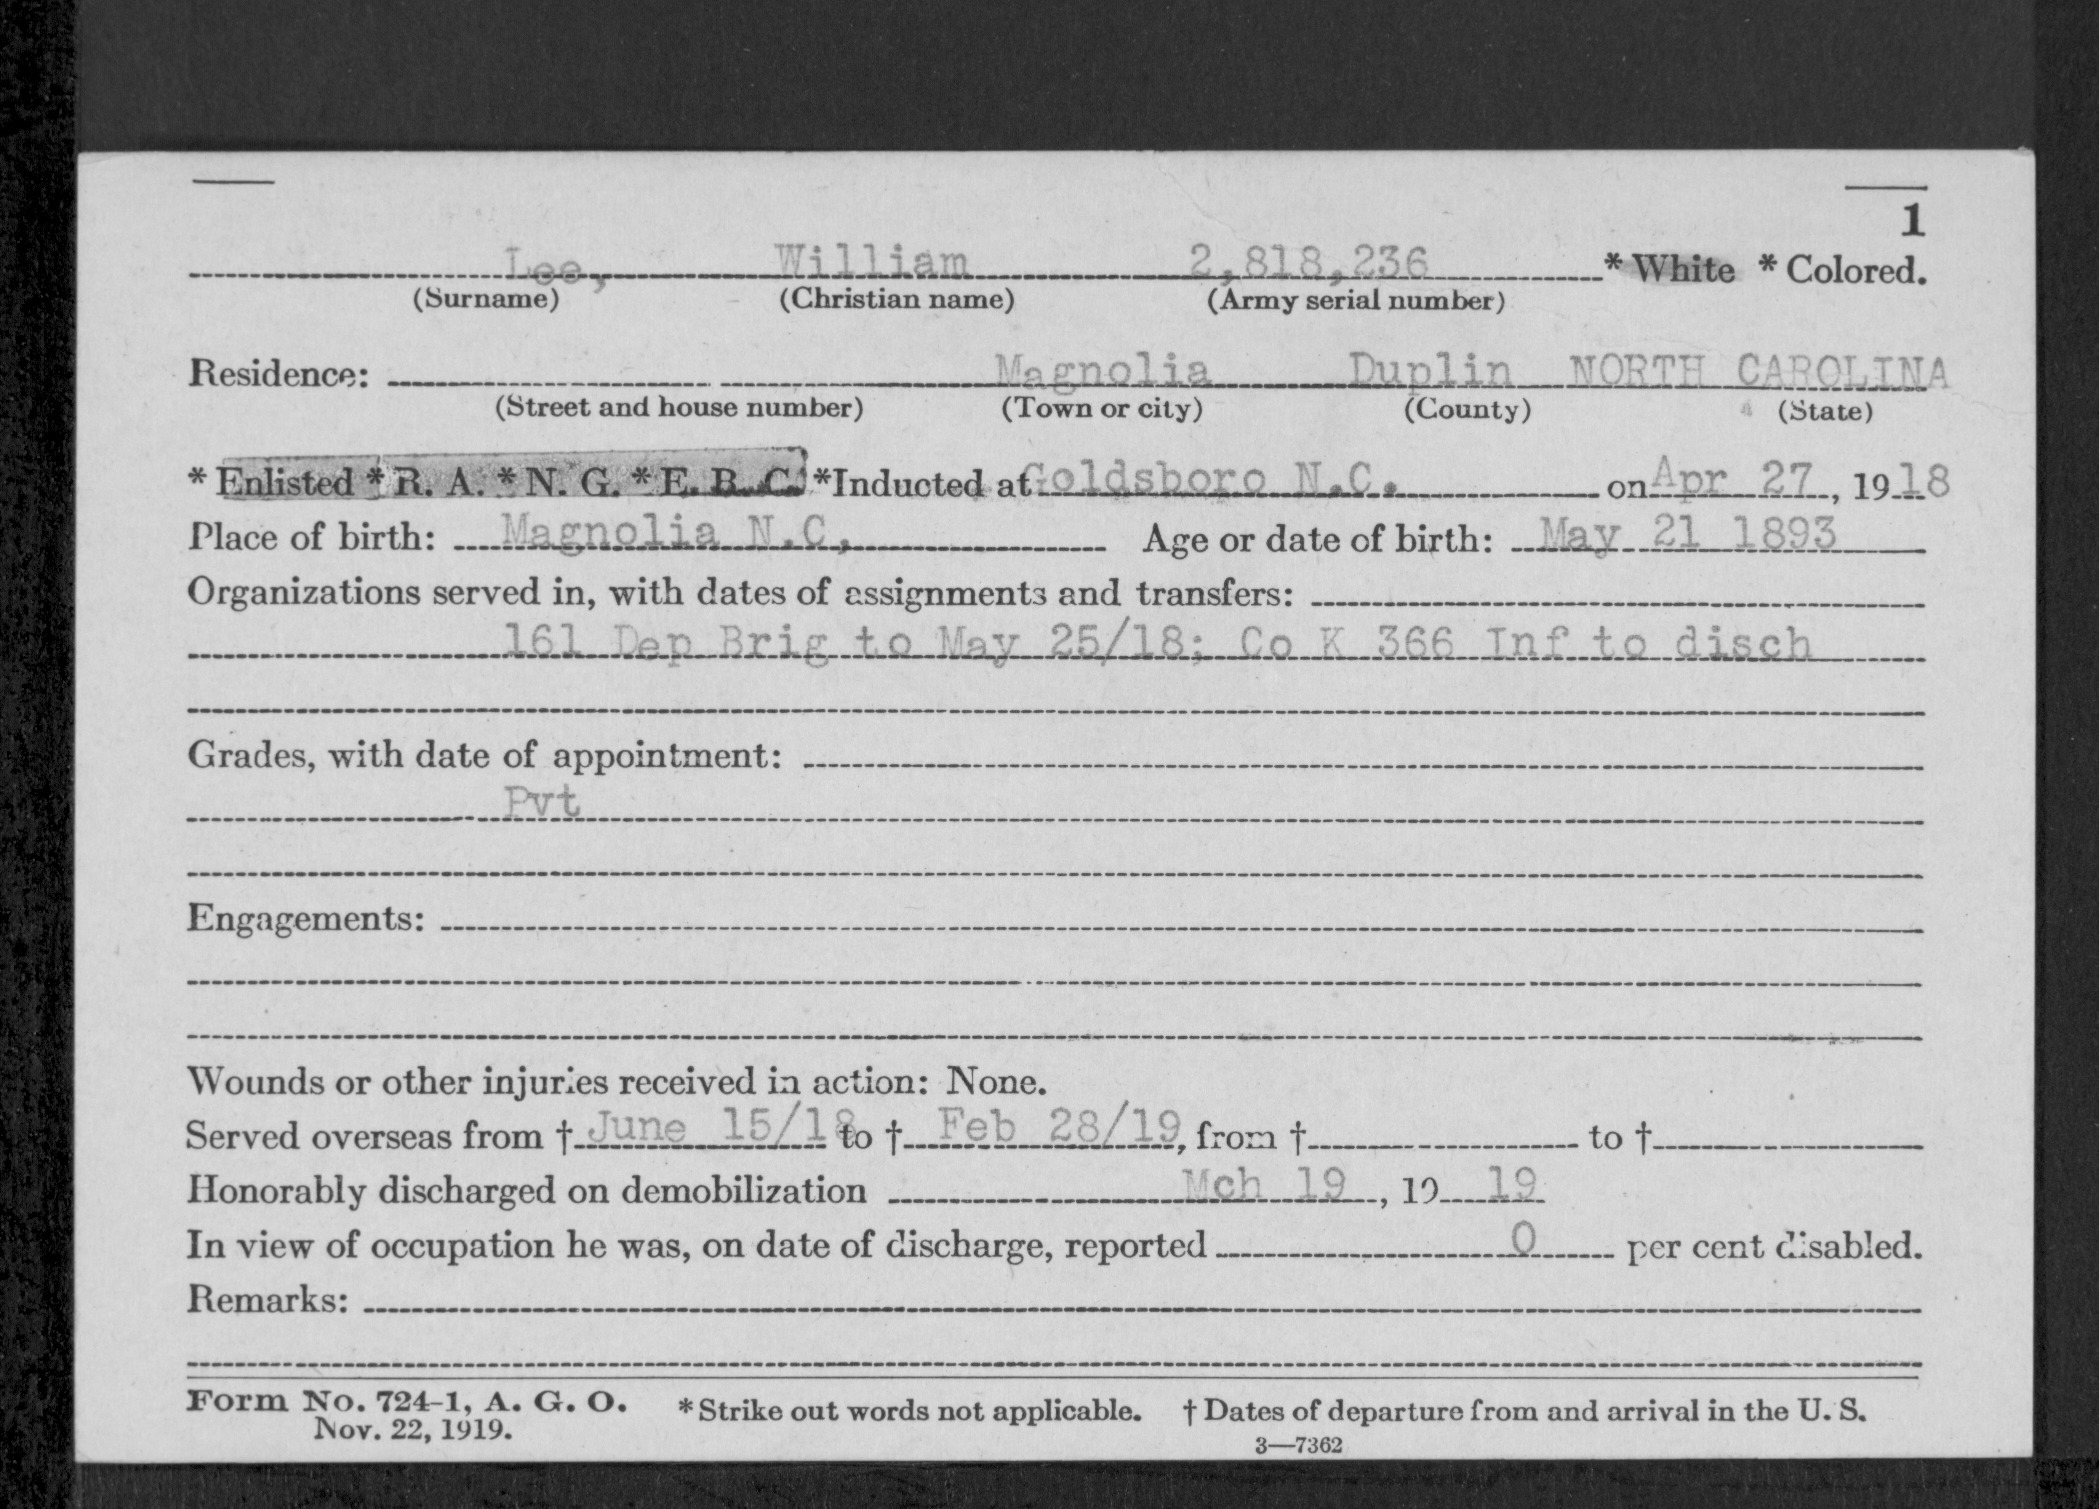 1
Lee, William 2,818,236 * White * Colored.
(Surname) (Christian name) (Army serial number)
Residence: Magnolia Duplin NORTH CAROLINA
(Street and house number) (Town or city) (County) (State)
* Enlisted * R. A. * N. G. * E. R. C. *Inducted at Goldsboro N.C. on Apr 27, 1918
Place of birth: Magnolia N.C. Age or date of birth: May 21 1893
Organizations served in, with dates of assignments and transfers:
161 Dep Brig to May 25/18; Co K 366 Inf to disch
Grades, with date of appointment:
Pvt
Engagements:
Wounds or other injuries received in action: None.
Served overseas from † June 15/18 to † Feb 28/19, from † to †
Honorably discharged on demobilization Mch 19, 1919
In view of occupation he was, on date of discharge, reported 0 per cent disabled.
Remarks:
Form No. 724-1, A. G. O. * Strike out words not applicable. † Dates of departure from and arrival in the U. S.
Nov. 22, 1919. 3—7362